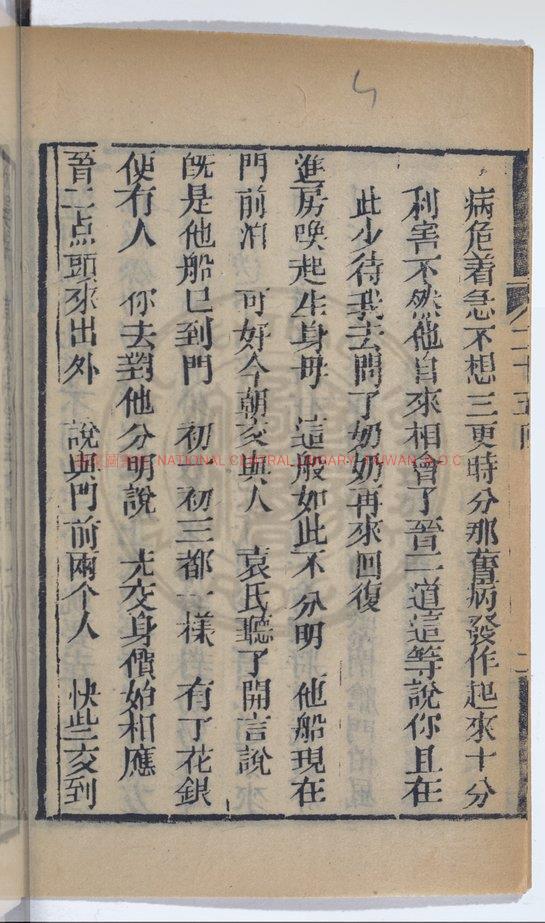 二十五回
病危着急不想三更時分那舊病發作起來十分
利害不然他自來相會了晉二道這等說你且在
此少待我去問了奶奶再來回復
進房喚起生身母 這般如此不分明 他船現在
門前泊 可好今朝亥與人 袁氏聽了開言說
旣是他船已到門 初一初三都一樣 有了花銀
便有人 你去對他分明說 先交身價始相應
晉二点頭來出外 說與門前兩个人 快些亥到
書府圖家國 NATIONAL CENTRAL LIBRARY, TAIWAN R.O.C